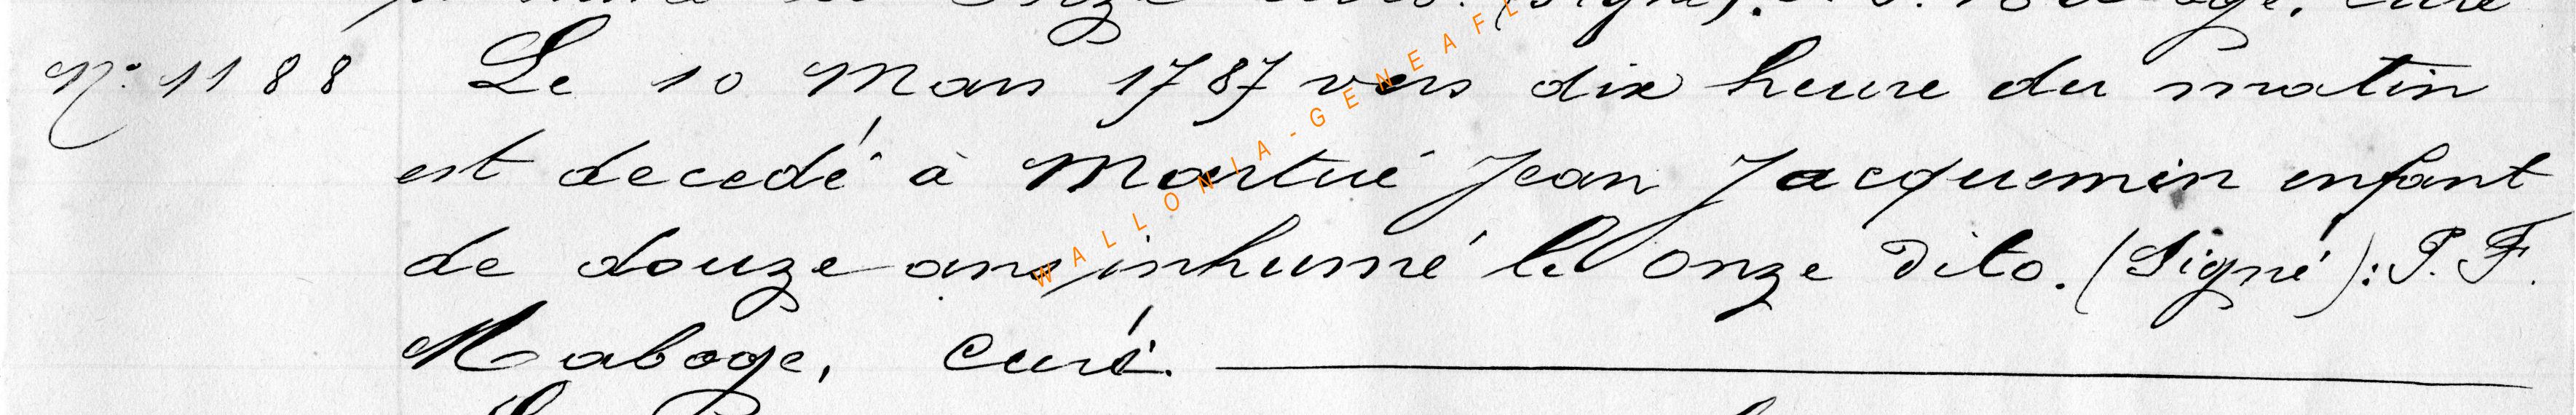 N° 1188 Le 10 Mars 1787 vers dix heure du matin
est decedé à Martué Jean Jacquemin enfant
de douze ans, inhumé le onze dito. (Signé): P. F.
Maboge, curé.
WALLONIA-GENEAFL